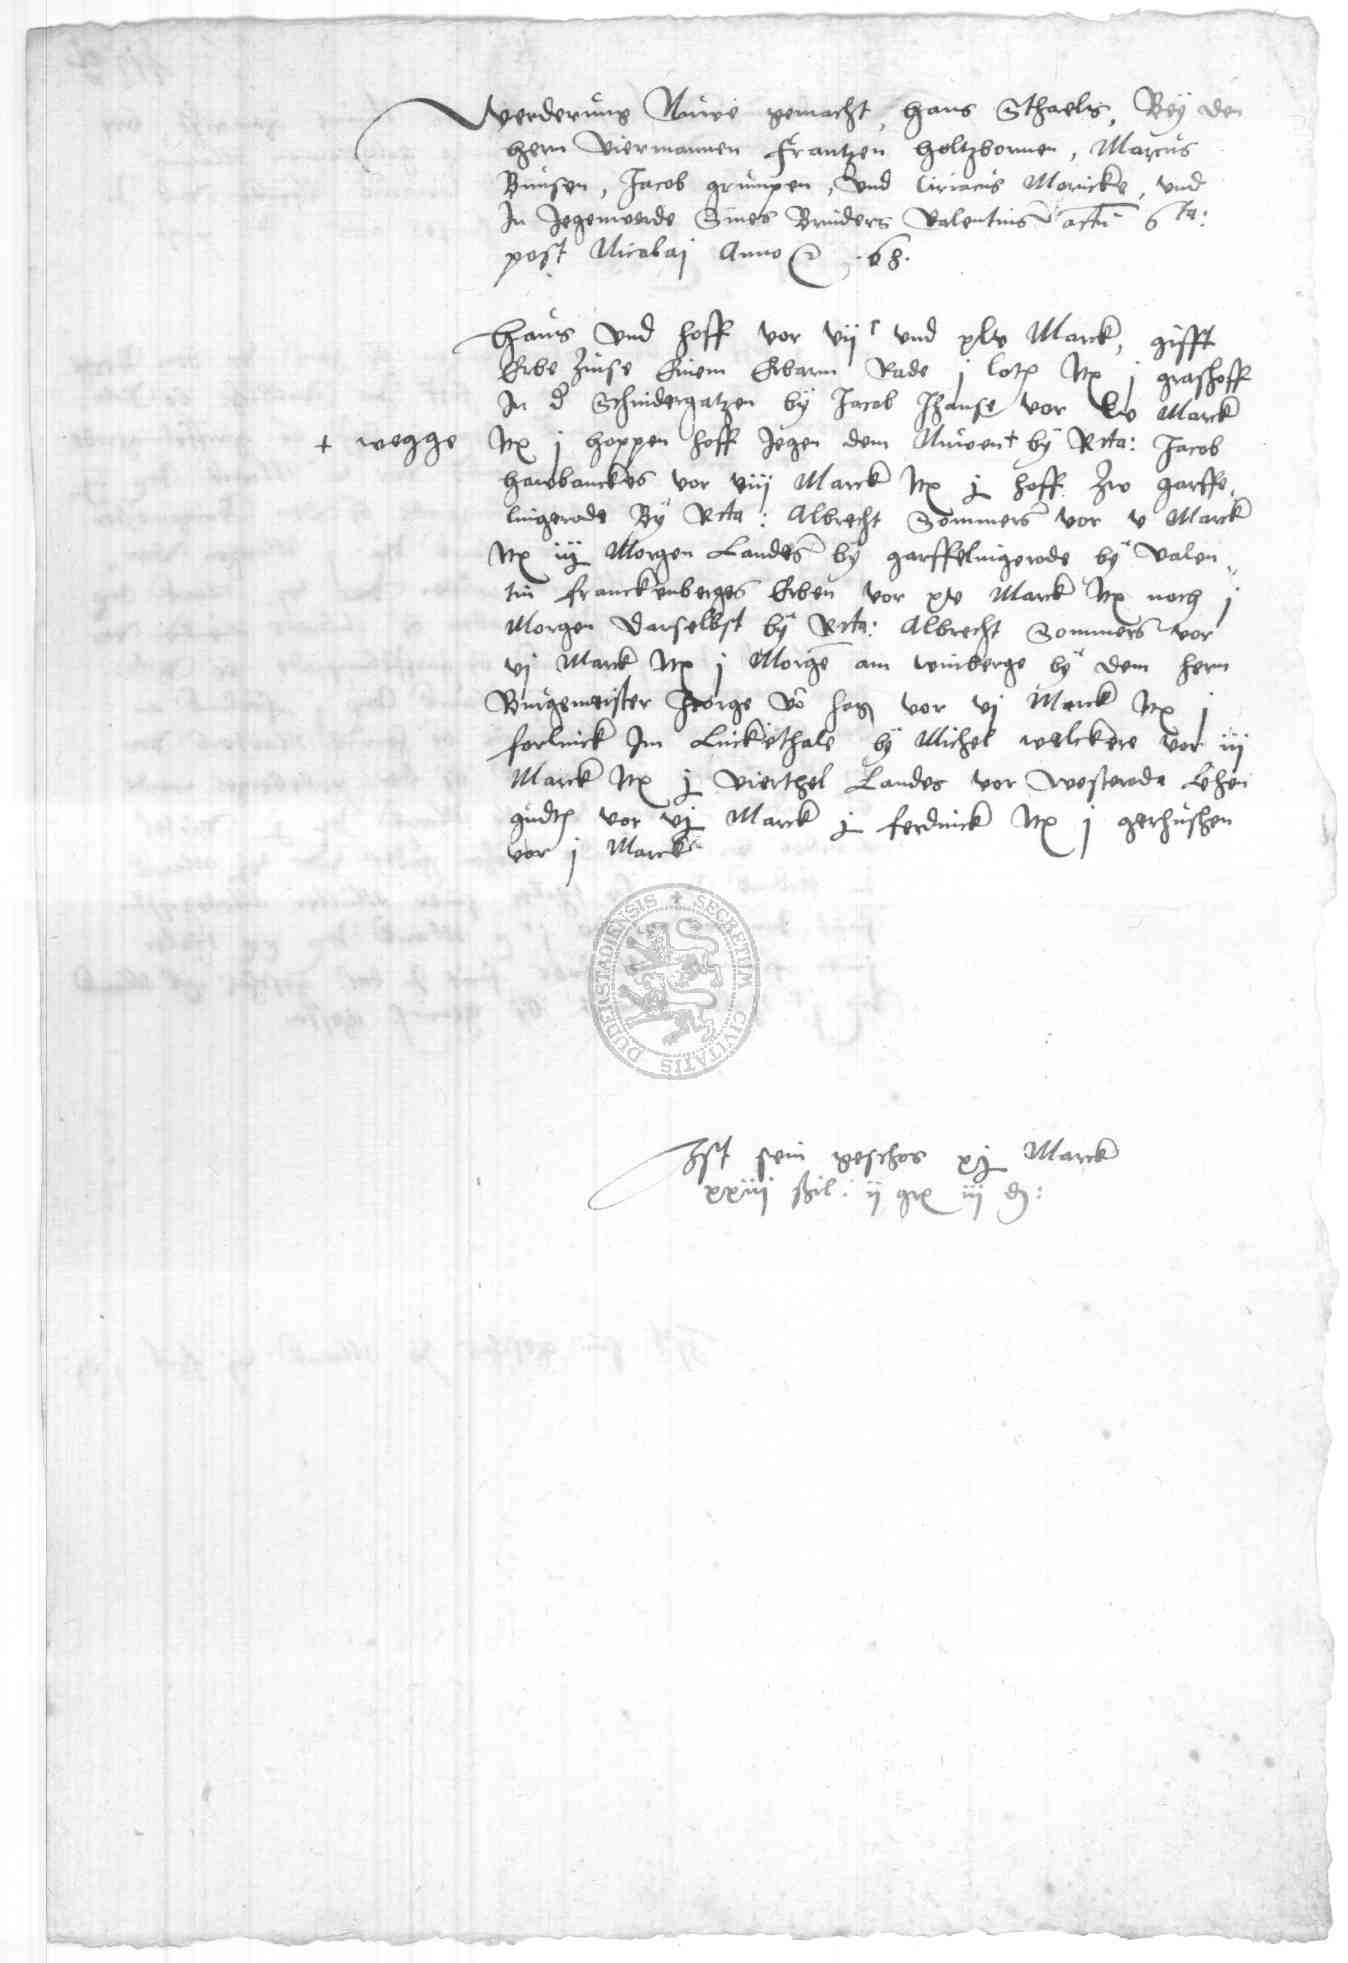 Werderung Nuwe gemacht, Hans Schaels, Bey den
hern Viermannen Frantzen Holtzbornen, Marcus
Bunsen, Jacob Grumpen, Und Ciriacus Monicke, und
In Jegenwerde Sines Bruders Valentins actu 6ta:
post Nicolaj Anno 68.
Haus Und Hoff vor vij und xlv Marck, gifft
Erbe Zinse Einem Erbarn Rade j lot Itx j grashoff
In d Schindergatzen by Jacob vor lv Marck
+ wegge
Itx j hoppen hoff Jegen dem Nuwen + by Rcta: Jacob
Hawbanckes vor viij Marck Itx j hoff Zw Garffe
lingerode By Rcta: Albrecht Sommers vor v Marck
Itx iij Morgen Landes by garffelingerode by Valen
tin Franckenberges Erben vor xv Marck Itx noch j
Morgen Darselbst by Rcta: Albrecht Sommers vor
vj Marck Itx j Morge am winberge by dem hern
Burgemeister Jeorge vo Hag vor vj Marck Itx j
forlinck Im Luckethale by Michel welckere vor iij
Marck Itx j vierthel Landes vor Westerode Lehen
gudt vor vj Marck j ferdinck Itx j gerhuschen
vor j Marck
SECRETUM CIVITATIS DUDERSTADIENSIS
Ist sein geschos xj Marck
xxiij schil: ij grx iij d: